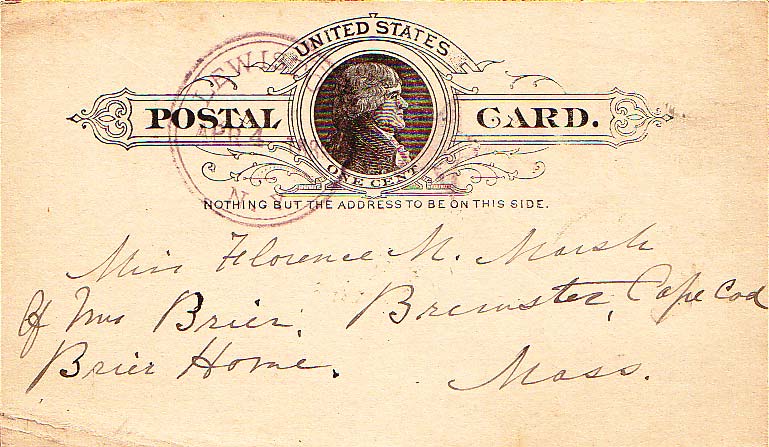 UNITED STATES
POSTAL CARD.
ONE CENT
LEWIS
APR 4
N.Y.
NOTHING BUT THE ADDRESS TO BE ON THIS SIDE.
Miss Florence M. Marsh
Of Mrs Brier, Brewster, Cape Cod
Brier Home. Mass.